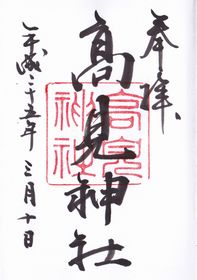 奉拝
高見神社
高見神社
平成二十五年三月十日